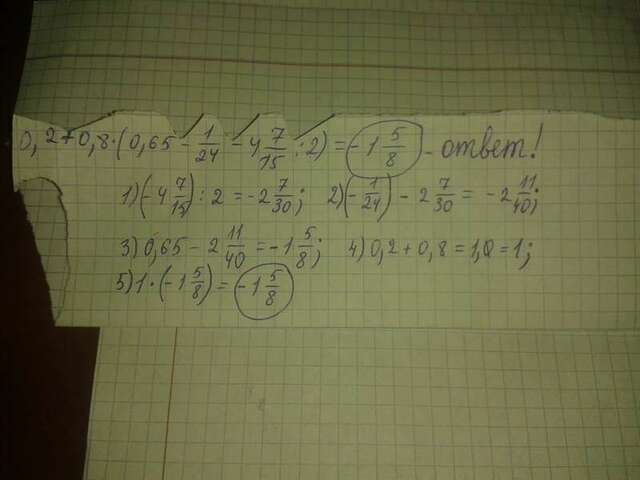 0,2+0,8·(0,65 - 1/24 - 4 7/15 : 2) = -1 5/8 - ответ!
1)(-4 7/15) : 2 = -2 7/30; 2)(-1/24) - 2 7/30 = -2 11/40;
3) 0,65 - 2 11/40 = -1 5/8; 4) 0,2 + 0,8 = 1,0 = 1;
5) 1 · (-1 5/8) = -1 5/8